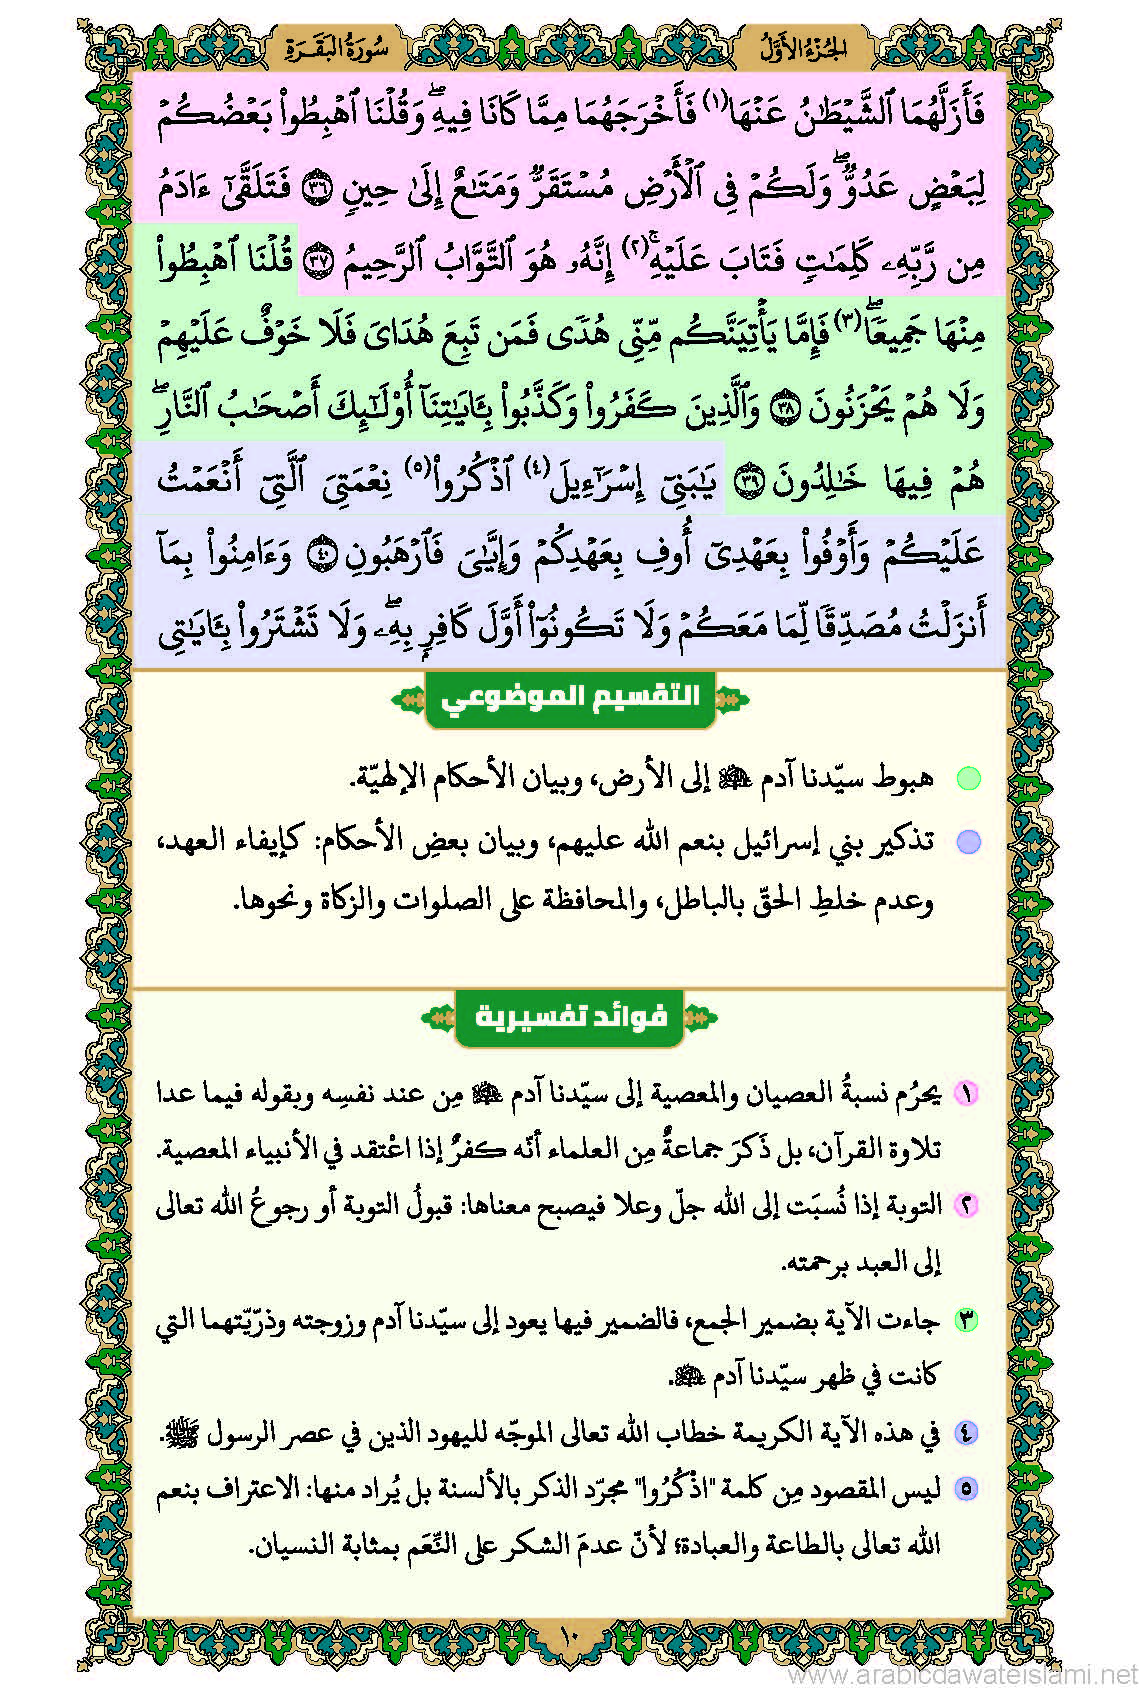 الجُزْءُ الأَوَّلُ
سُورَةُ البَقَرَةِ
فَأَزَلَّهُمَا ٱلشَّيۡطَٰنُ عَنۡهَا(١) فَأَخۡرَجَهُمَا مِمَّا كَانَا فِيهِۖ وَقُلۡنَا ٱهۡبِطُواْ بَعۡضُكُمۡ
لِبَعۡضٍ عَدُوّٞۖ وَلَكُمۡ فِي ٱلۡأَرۡضِ مُسۡتَقَرّٞ وَمَتَٰعٌ إِلَىٰ حِينٖ ٣٦ فَتَلَقَّىٰٓ ءَادَمُ
مِن رَّبِّهِۦ كَلِمَٰتٖ فَتَابَ عَلَيۡهِۚ(٢) إِنَّهُۥ هُوَ ٱلتَّوَّابُ ٱلرَّحِيمُ ٣٧ قُلۡنَا ٱهۡبِطُواْ
مِنۡهَا جَمِيعٗاۖ(٣) فَإِمَّا يَأۡتِيَنَّكُم مِّنِّي هُدٗى فَمَن تَبِعَ هُدَايَ فَلَا خَوۡفٌ عَلَيۡهِمۡ
وَلَا هُمۡ يَحۡزَنُونَ ٣٨ وَٱلَّذِينَ كَفَرُواْ وَكَذَّبُواْ بِـَٔايَٰتِنَآ أُوْلَٰٓئِكَ أَصۡحَٰبُ ٱلنَّارِۖ
هُمۡ فِيهَا خَٰلِدُونَ ٣٩ يَٰبَنِيٓ إِسۡرَٰٓءِيلَ(٤) ٱذۡكُرُواْ(٥) نِعۡمَتِيَ ٱلَّتِيٓ أَنۡعَمۡتُ
عَلَيۡكُمۡ وَأَوۡفُواْ بِعَهۡدِيٓ أُوفِ بِعَهۡدِكُمۡ وَإِيَّٰيَ فَٱرۡهَبُونِ ٤٠ وَءَامِنُواْ بِمَآ
أَنزَلۡتُ مُصَدِّقٗا لِّمَا مَعَكُمۡ وَلَا تَكُونُوٓاْ أَوَّلَ كَافِرِۭ بِهِۦۖ وَلَا تَشۡتَرُواْ بِـَٔايَٰتِي
التقسيم الموضوعي
هبوط سيّدنا آدم ﷺ إلى الأرض، وبيان الأحكام الإلهيّة.
تذكير بني إسرائيل بنعم الله عليهم، وبيان بعضِ الأحكام: كإيفاء العهد،
وعدم خلطِ الحقّ بالباطل، والمحافظة على الصلوات والزكاة ونحوها.
فوائد تفسيرية
١ يحرُم نسبةُ العصيان والمعصية إلى سيّدنا آدم ﷺ مِن عند نفسِه وبقوله فيما عدا
تلاوة القرآن، بل ذَكَرَ جماعةٌ مِن العلماء أنّه كفرٌ إذا اعْتقد في الأنبياء المعصية.
٢ التوبة إذا نُسبَت إلى الله جلّ وعلا فيصبح معناها: قبولُ التوبة أو رجوعُ الله تعالى
إلى العبد برحمته.
٣ جاءت الآية بضمير الجمع، فالضمير فيها يعود إلى سيّدنا آدم وزوجته وذرّيّتهما التي
كانت في ظهر سيّدنا آدم ﷺ.
٤ في هذه الآية الكريمة خطاب الله تعالى الموجّه لليهود الذين في عصر الرسول ﷺ.
٥ ليس المقصود مِن كلمة "اذْكُرُوا" مجرّد الذكر بالألسنة بل يُراد منها: الاعتراف بنعم
الله تعالى بالطاعة والعبادة؛ لأنّ عدمَ الشكر على النِّعَم بمثابة النسيان.
١٠
www.arabicdawateislami.net